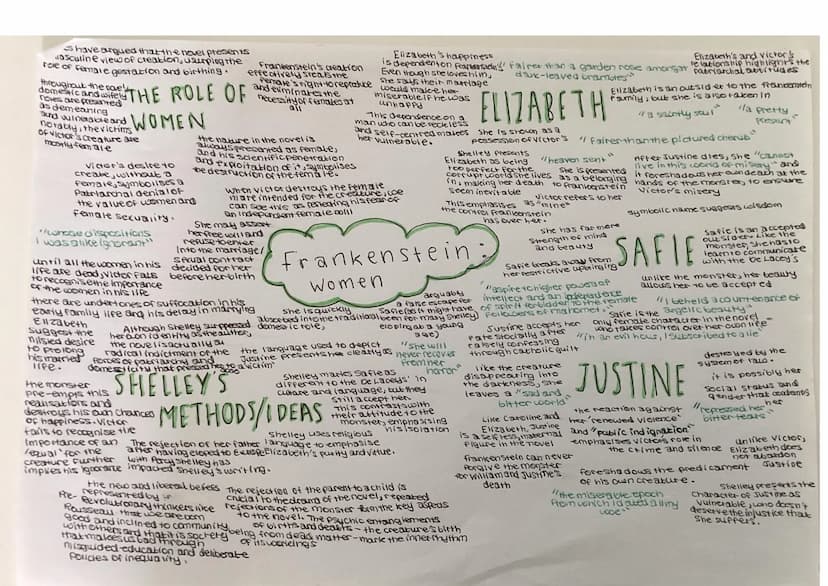 s have argued that the novel presents
masculine view of creation, usurping the
role of female gestation and birthing.
Frankenstein's creation
effectively steals the
female's right to reproduce
and eliminates the
necessity of females at
all
throughout the novel
domestic and wifely
roles are presented
as demeaning
and vulnerable and
notably, the victims
of Victor's creature are
mostly female
THE ROLE OF
WOMEN
the nature in the novel is
always presented as female,
and his scientific penetration
and exploitation of it, symbolises
the destruction of the female.
Victor's desire to
create, without a
female, symbolises a
patriarchal denial of
the value of women and
female sexuality.
When Victor destroys the female
mate intended for the creature, we
can see this as revealing his fear of
an independent female will
She may assert
her free will and
refuse to enter
into the marriage/
sexual contract
decided for her
before her birth
"whose dispositions
I was alike ignorant"
until all the women in his
life are dead, Victor fails
to recognise the importance
of the women in his life
there are undertones of suffocation in his
early family life and his delay in marrying
Elizabeth
suggest the
desire
to prolong
his married
life.
Elizabeth's happiness
is dependent on Frankenstein's
Even though she loves him,
she says their marriage
would make her
miserable if he was
unhappy
This dependence on a
man who can be reckless
and self-centred makes
her vulnerable.
ELIZABETH
"fairer than a garden rose amongst
dark-leaved brambles"
Elizabeth's and Victor's
relationship highlights the
patriarchal attitudes
Elizabeth is an outsider to the Frankenstein
family, but she is also taken in
"a saintly soul"
"a pretty
present"
She is shown as a
possession of Victor's
"fairer than the pictured cherub"
Shelley presents
Elizabeth as being
too perfect for the
corrupt world she lives
in, making her death
seem inevitable
"heaven sent"
She is presented
as a belonging
to Frankenstein
Victor refers to her
as "mine"
This emphasises
the control Frankenstein
has over her.
After Justine dies, she "cannot
live in this world of misery" and
it foreshadows her own death at the
hands of the monster, to ensure
Victor's misery
symbolic name suggests wisdom
Frankenstein:
women
She has far more
strength of mind
and beauty
SAFIE
Safie is an accepted
outsider. Like the
monster, she has to
learn to communicate
with the De Lacey's
Safie breaks away from
her restrictive upbringing
unlike the monster, her beauty
allows her to be accepted
"aspire to higher powers of
intellect and an independence
of spirit forbidden to the female
followers of Mahomet"
"I beheld a countenance of
angelic beauty"
Safie is the only
female character in the novel
who takes control over her own life
she is quickly
absorbed into the traditional
domestic role.
arguably
a false escape for
Safie (as it might have
been for Mary Shelley
eloping at a young
age)
Although Shelley suppressed
her own identity as the author,
the novel is actually a
radical indictment of the
forces of patriarchy and
domesticity that pressed her
SHELLEY'S
METHODS/IDEAS
the language used to depict
Justine presents her clearly as
a victim
Shelley makes Safie
different to the De Laceys' in
culture and language, but they
still accept her.
This contrasts with
their attitude to the
monster, emphasising
his isolation
Shelley uses religious
language to emphasise
Elizabeth's purity and virtue.
The monster
pre-empts this
realisations and
destroys his own chances
of happiness. Victor
fails to recognise the
importance of an
'equal' for the
creature further
implies his ignorance
The rejection of her father
after having eloped to Europe
with Percy Shelley has
impacted Shelley's writing.
The new and liberal beliefs
represented by
Pre-Revolutionary thinkers like
Rousseau that we are born
good and inclined to community
with others and that it is society
that makes us bad through
misguided education and deliberate
policies of inequality.
The rejection of the parent to a child is
crucial to the drama of the novel, repeated
rejections of the monster form the key aspects
to the novel. The psychic entanglements
of births and deaths - the creature's birth
being from dead matter - mark the inner rhythm
of its workings
JUSTINE
Justine accepts her
fate stoically after
falsely confessing
through catholic guilt
"in an evil hour, I subscribed to a lie"
"she will
never recover
from her
horror"
Like the creature
disappearing into
the darkness, she
leaves a "sad and
bitter world"
destroyed by the
system of law.
it is possibly her
social status and
gender that condemns
her
"repressed her
bitter tears"
Like Caroline and
Elizabeth, Justine
is a selfless, maternal
figure in the novel
the reaction against
her "renewed violence"
and "public indignation"
emphasises Victor's role in
the crime and silence
unlike Victor,
Elizabeth does
not abandon
Justine
Frankenstein can never
forgive the monster
for William and Justine's
death
Foreshadows the predicament
of his own creature.
"the miserable epoch
from which I dated all my
woe"
Shelley presents the
character of Justine as
vulnerable, who doesn't
deserve the injustice that
she suffers.